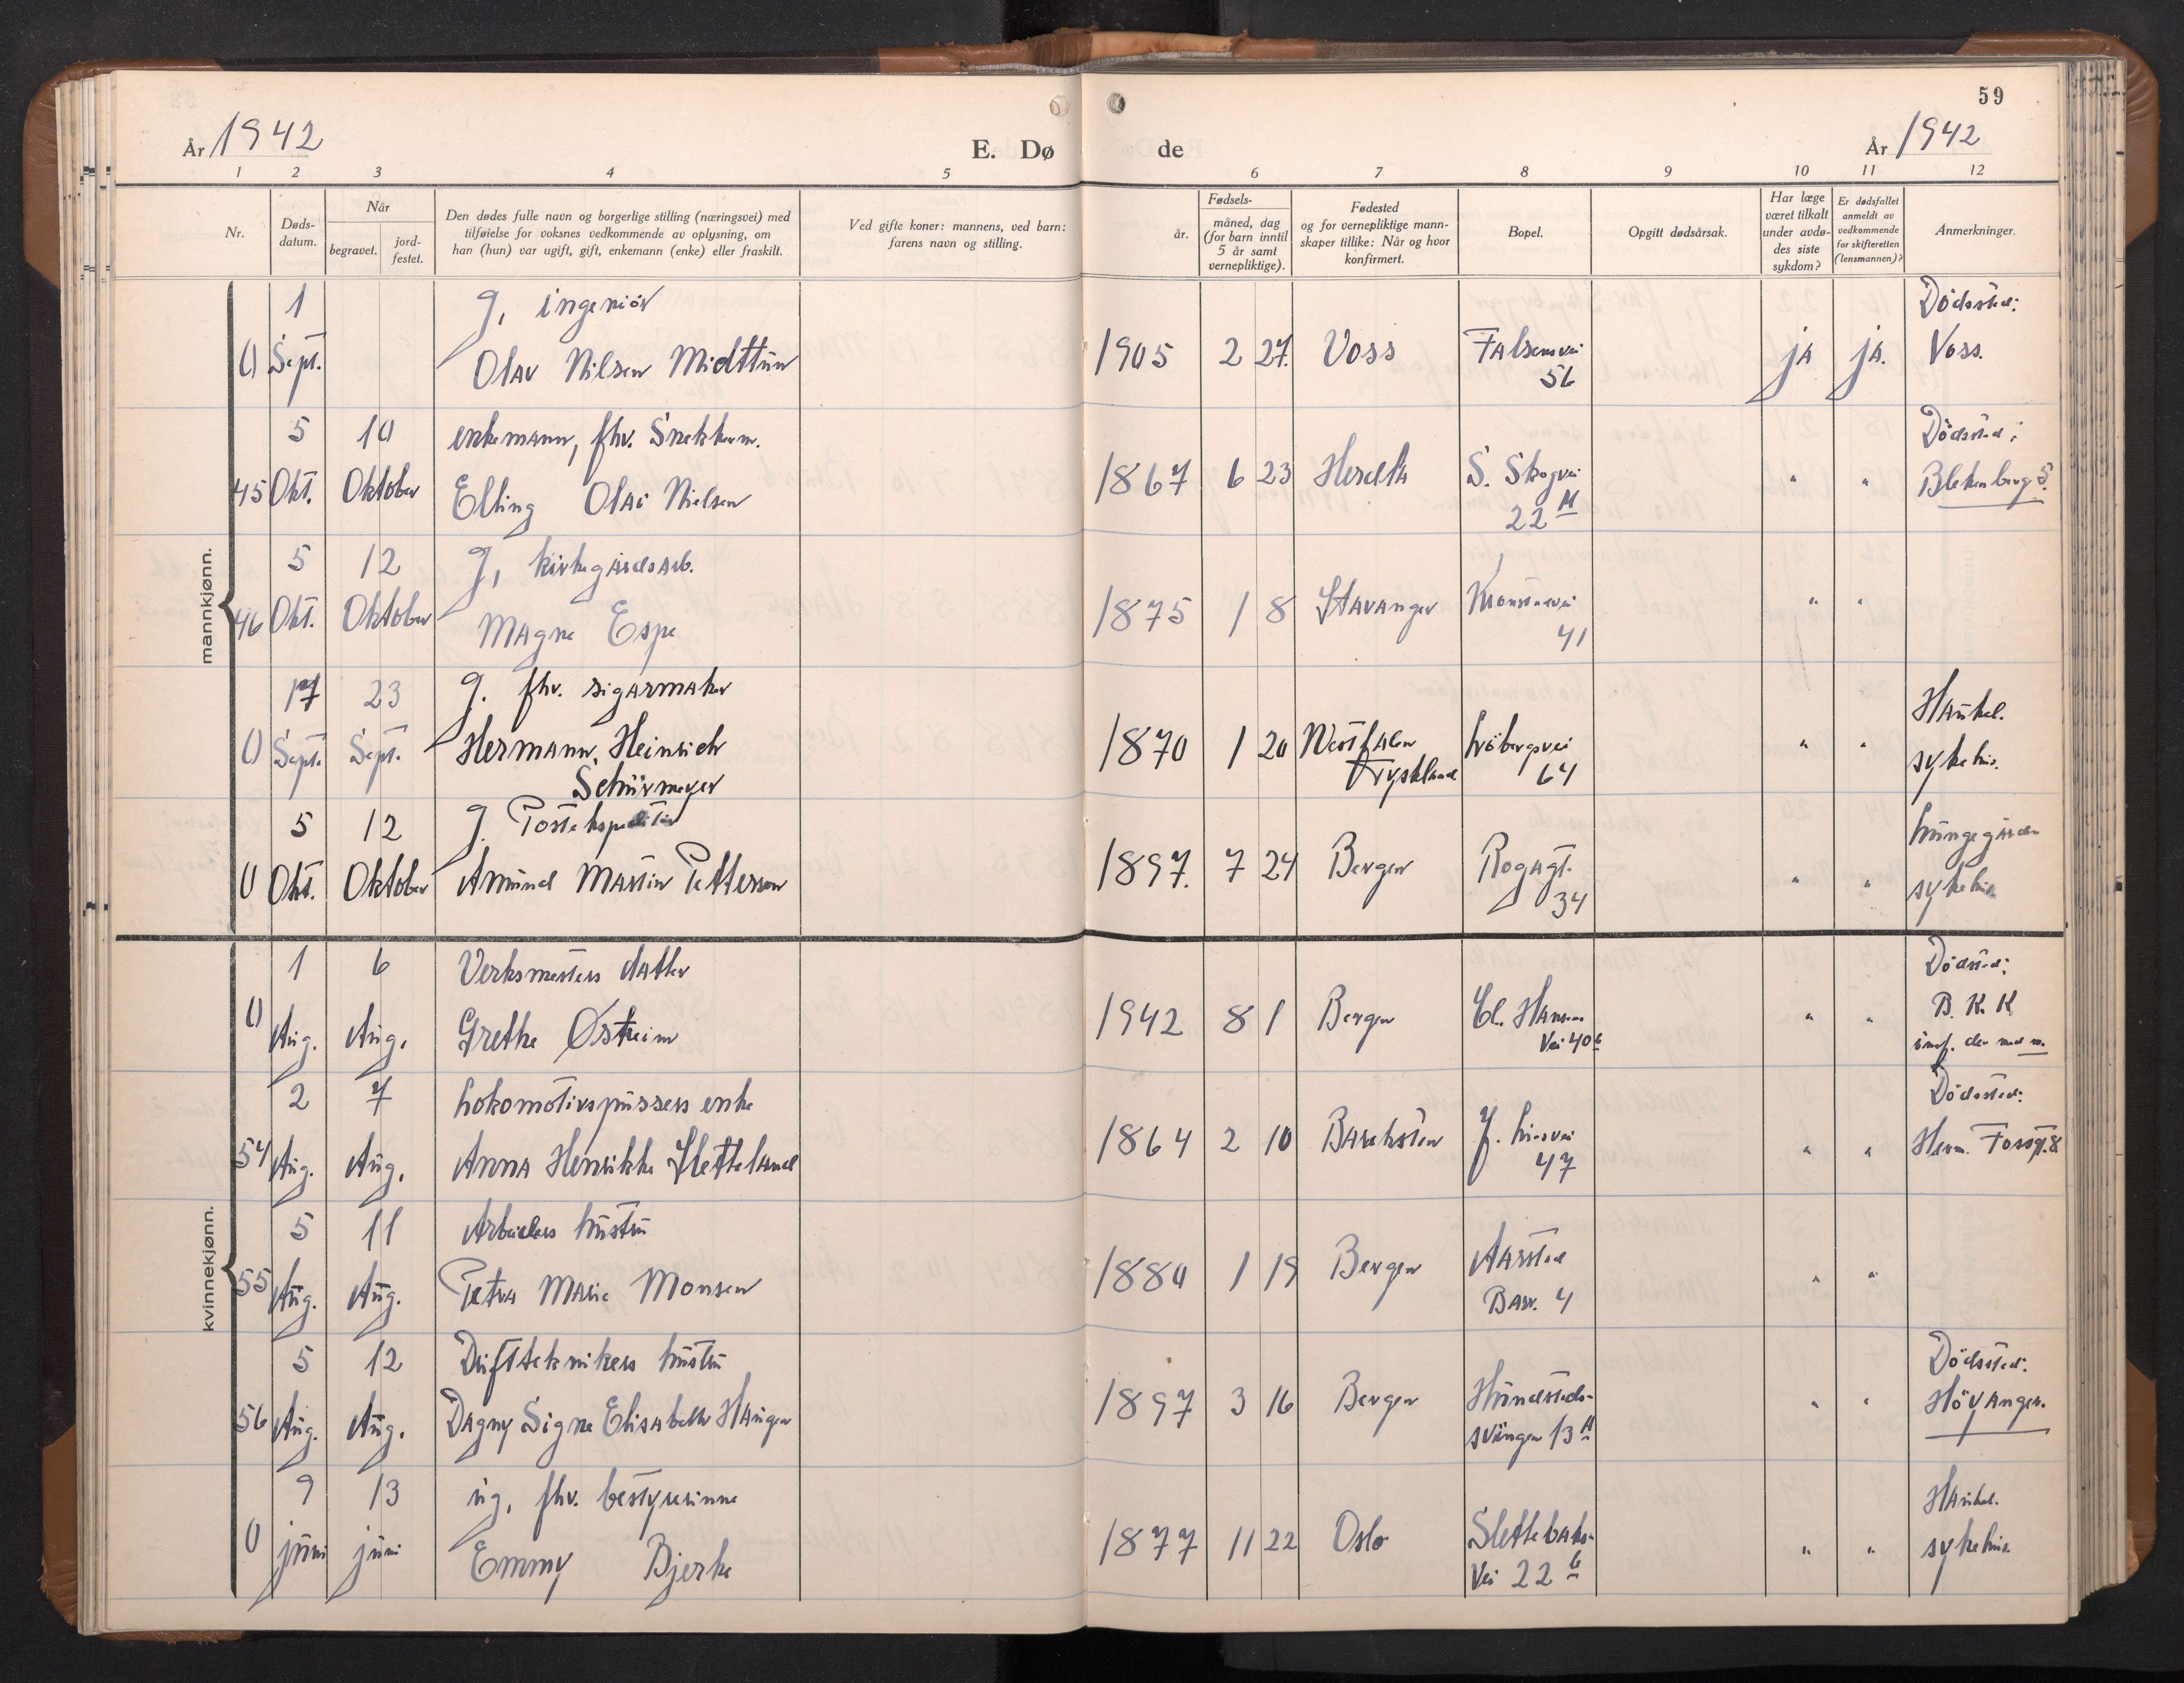 59
År 1942
E. Dø
de
År 1942
1 2 3 4 5 6 7 8 9 10 11 12
Nr.
Døds-
datum.
Når
begravet.
jord-
festet.
Den dødes fulle navn og borgerlige stilling (næringsvei) med
tilføielse for voksnes vedkommende av oplysning, om
han (hun) var ugift, gift, enkemann (enke) eller fraskilt.
Ved gifte koner: mannens, ved barn:
farens navn og stilling.
Fødsels-
år.
måned, dag
(for barn inntil
5 år samt
vernepliktige).
Fødested
og for vernepliktige mann-
skaper tillike: Når og hvor
konfirmert.
Bopel.
Opgitt dødsårsak.
Har læge
været tilkalt
under avdø-
des siste
sykdom?
Er dødsfallet
anmeldt av
vedkommende
for skifteretten
(lensmannen)?
Anmerkninger.
mannkjønn.
1 g, ingeniör Dödssted:
0 Sept. Olav Nilsen Midttun 1905 2 27. Voss Falsensvei ja ja. Voss.
56
5 10 enkemann, fhv. Snekkerm. Dödssted:
45 Okt. Oktober Elling Olai Nielsen 1867 6 23 Herdla S. Skogvei " " Blekenberg 5.
22 A
5 12 g, kirkegårdsarb.
46 Okt. Oktober Magne Espe 1875 1 8 Stavanger " "
41
17 23 g. fhv. sigarmaker Haukel.
0 Sept. Sept. Hermann, Heinrich 1870 1 20 Westfalen Löbergsvei " " sykehus.
Schürmeyer Tryskland 64
5 12 g. Postekspeditör Lungegården
0 Okt. Oktober Amund Martin Pettersen 1897. 7 24 Bergen Rogagt. " " sykehus
34
kvinnekjønn.
1 6 Verksmesters datter Dödsted:
0 Aug. Aug. Grethe Østheim 1942 8 1 Bergen Cl. Hansens " " B. K. K
Vei 40 b
2 7 Lokomotivpussers enke Dödssted:
54 Aug. Aug. Anna Henrikke Sletteland 1864 2 10 J. Liesvei " " Herm. Fossgt. 8
47
5 11 Arbeiders hustru
55 Aug. Aug. Petra Marie Monsen 1880 1 19 Bergen Aarstad " "
Barr. 4
5 12 Driftteknikers hustru Dödssted:
56 Aug. Aug. Dagny Signe Elisabeth Haugen 1897 3 16 Bergen Hundsteds- " " Höyanger.
svingen 13 A
9 13 ug, fhv. bestyrerinne Haukel.
0 juni juni Emmy Bjerke 1877 11 22 Oslo Slettebaks- " " sykehus.
Vei 22 b